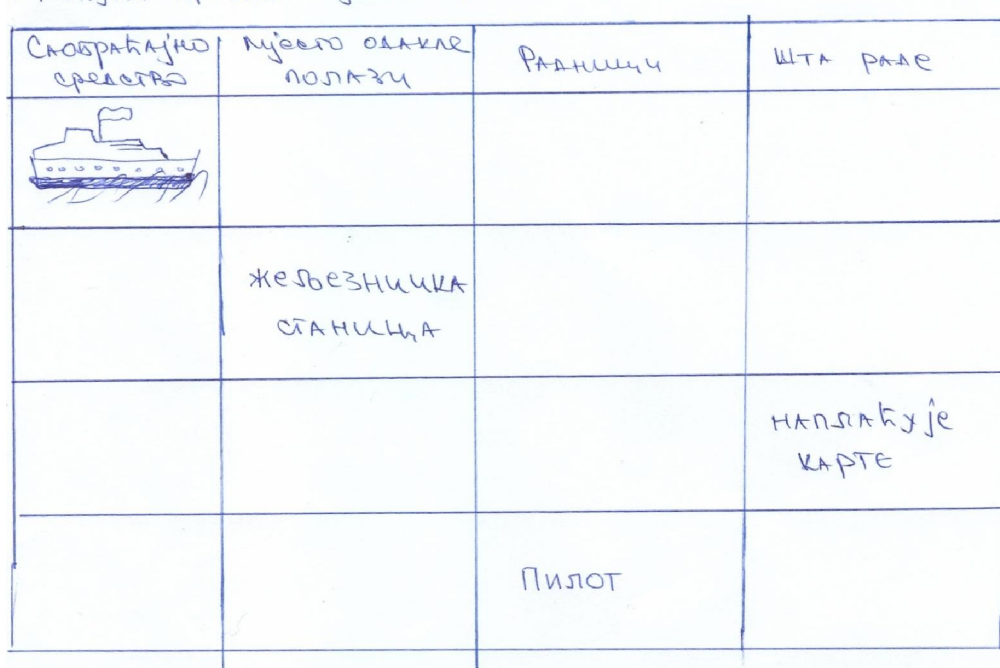 Саобраћајно
средство
Мјесто одакле
полази
Радници
Шта раде
Жељезничка
станица
наплаћује
карте
Пилот